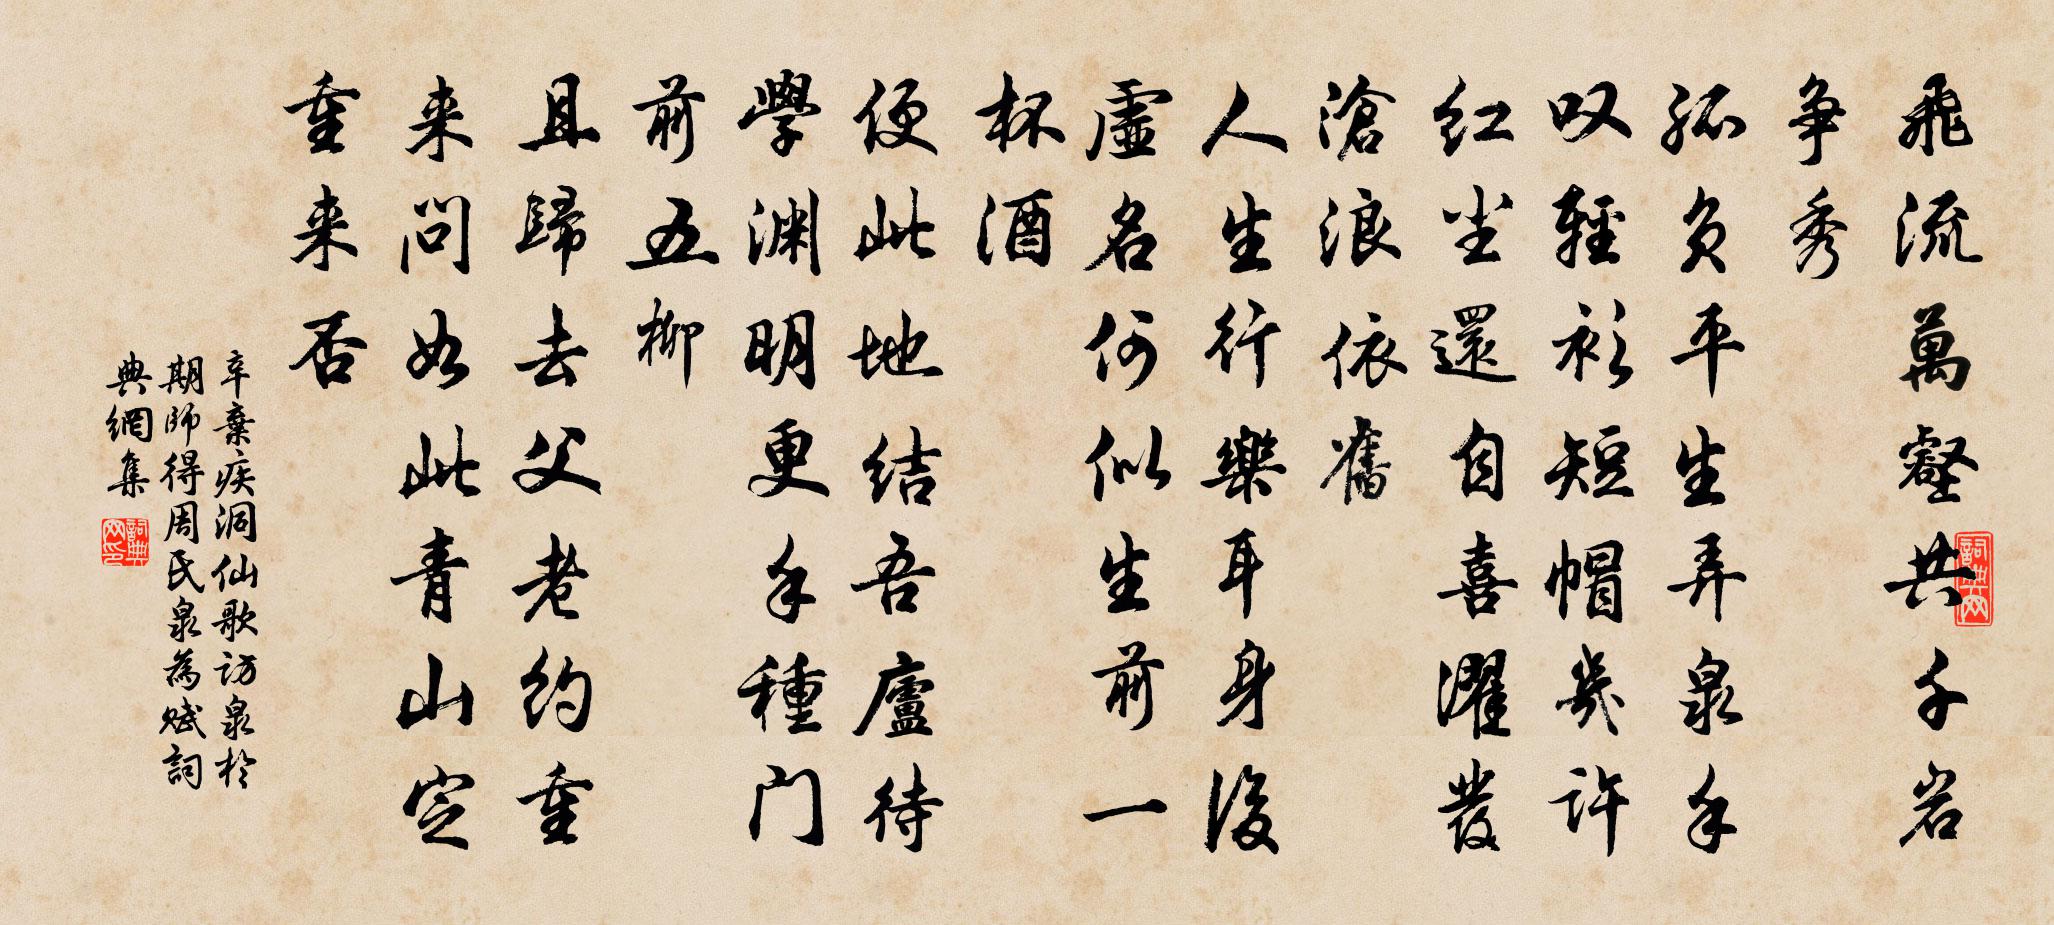 飛流萬壑共千岩
争秀
孤负平生弄泉手
叹輕衫短帽幾许
红尘還自喜濯發
滄浪依舊
人生行樂耳身後
虛名何似生前一
杯酒
便此地結吾廬待
學渊明更手種门
前五柳
且歸去父老約重
来問如此青山定
重来否
辛棄疾洞仙歌訪泉於
期師得周氏泉為賦詞
典網集
詞典网
詞典网印